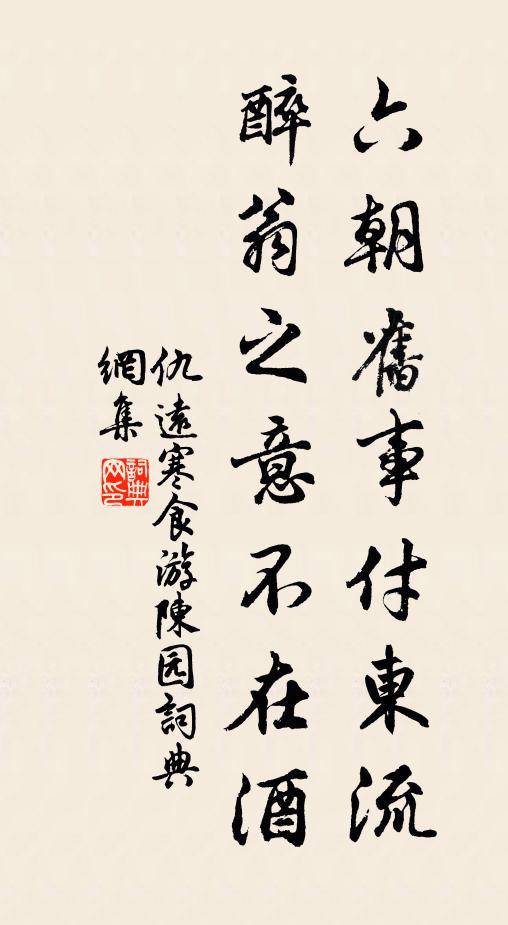 六朝舊事付東流
醉翁之意不在酒
仇遠寒食游陳园詞典
網集
詞典网印